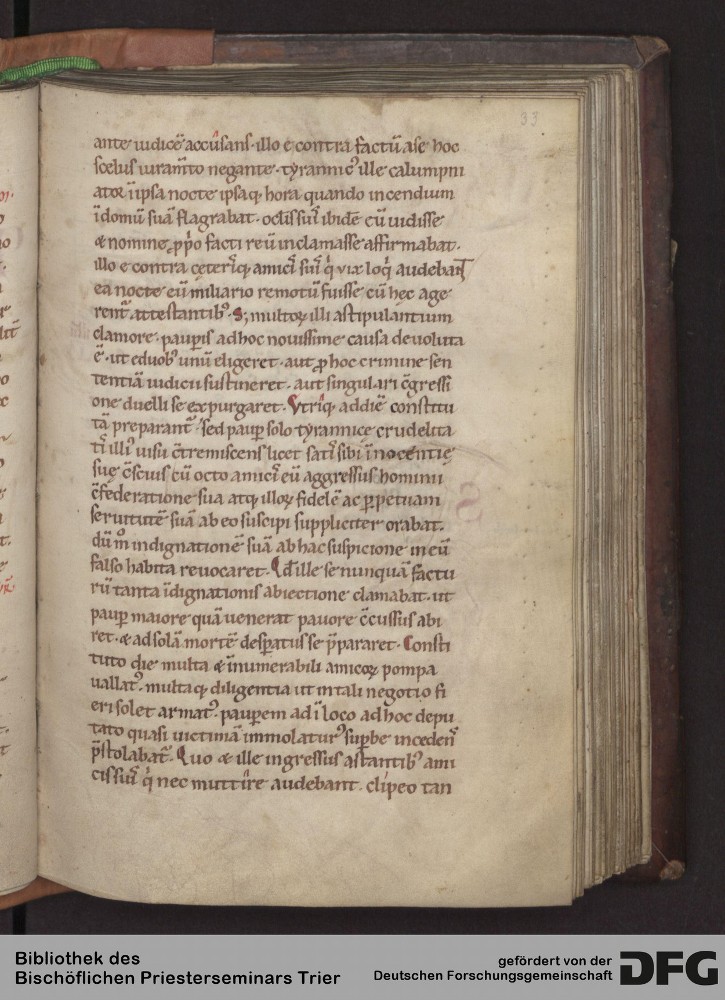 33
ante iudicē accusans · illo e contra factū a se hoc
scelus iuram̄to negante · tyrannic᷒ ille calumpni
atoꝝ ī ipsa nocte ipsaq; hora quando incendium
ī domū suā flagrabat · oclīs suīs ibidē cū uidisse
& nomine ꝓpⁱo facti reū inclamasse affirmabat ·
illo e contra cęterisq; amicis suis qⁱ uix loqⁱ audebant
ea nocte eū miliario remotū fuisse cū hęc age
rent᷑ attestantib᷒ · S; multoꝝ illi astipulantium
clamore · pauꝑis adhoc nouissime causa deuoluta
ē · ut eduob᷒ unū eligeret · aut ꝓ hoc crimine sen
tentiā iudicii sustineret · aut singulari c̄gressi
one duelli se expurgaret · Vtriq; ad diē constitu
tā preparant᷑ · sed pauꝑ solo tyrannice crudelita
tis illi᷒ uisu c̄tremiscens licet satis sibi īnocentię
suę c̄scius cū octo amicis eū aggressus hominii
c̄federatione sua atq; illoꝝ fidelē ac ꝑpetuam
seruitutē suā ab eo suscipi suppliciter orabat ·
dū m̊ indignationē suā ab hac suspicione in eū
falso habita reuocaret · Qđ ille se nunquā factu
rū tanta īdignationis abiectione clamabat · ut
pauꝑ maiore quā uenerat pauore c̄cussus abi
ret · & ad solā mortē desꝑatus se p̄pararet · Consti
tuto die multa & īnumerabili amicoꝝ pompa
uallat᷒ · multaq; diligentia ut in tali negotio fi
eri solet armat᷒ · pauꝑem ad ī loco ad hoc depu
tato quasi uictimā immolatur᷒ suꝑbe incedens
p̄stolabat᷑ · Quo & ille ingressus astantib᷒ ami
cis suis qⁱ nec muttire audebant · clipeo tan
Bibliothek des
Bischöflichen Priesterseminars Trier
gefördert von der
Deutschen Forschungsgemeinschaft
DFG